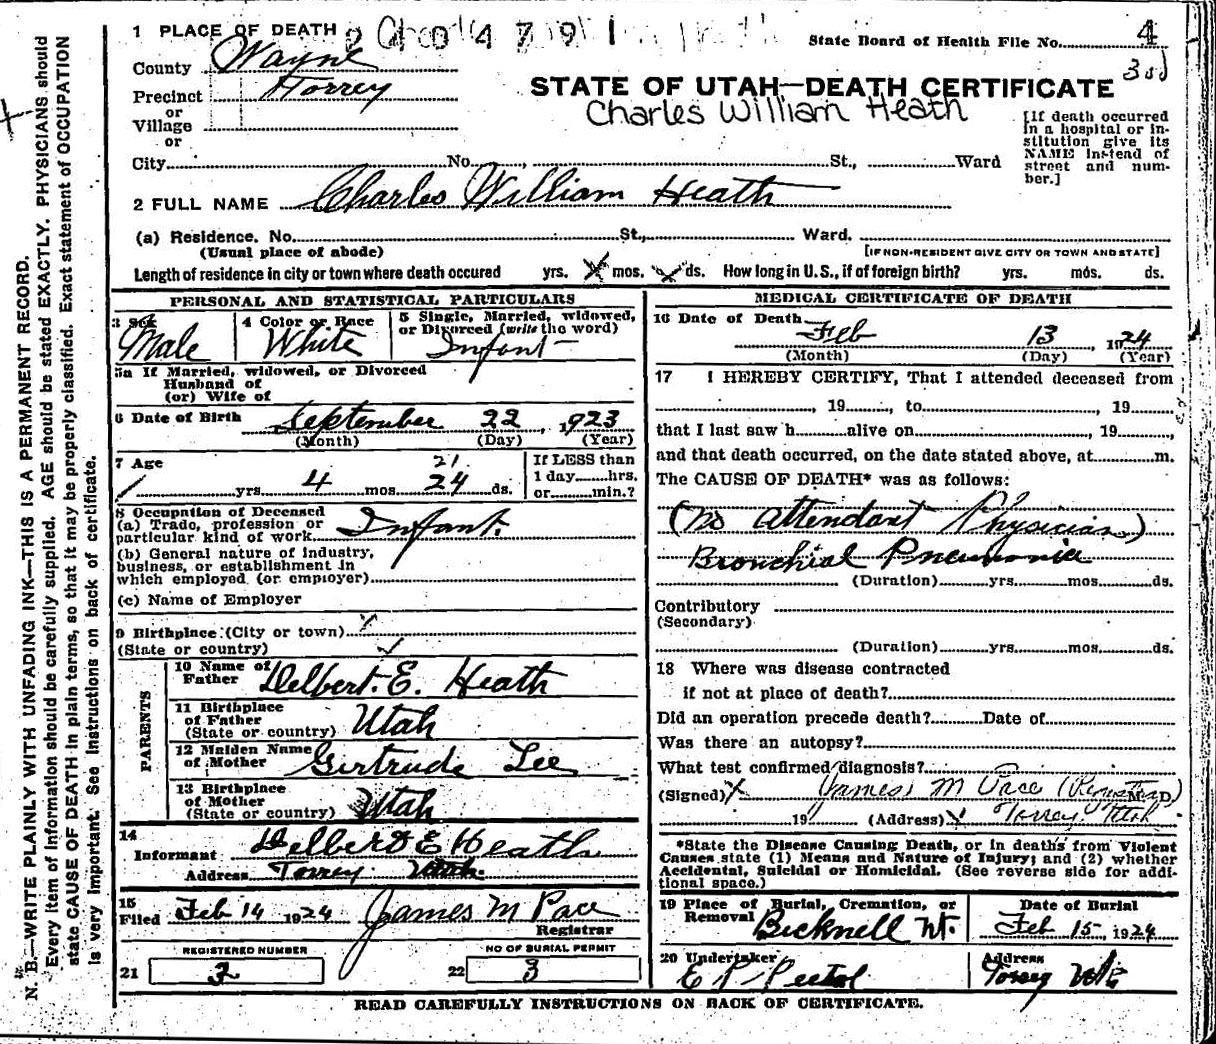 1 PLACE OF DEATH 2 4 0 4 7 9 1
State Board of Health File No. 4
County Wayne
Precinct Torrey
or
Village
or
STATE OF UTAH—DEATH CERTIFICATE
Charles William Heath
[If death occurred in a hospital or institution give its NAME instead of street and number.]
City No. , St., Ward
2 FULL NAME Charles William Heath
(a) Residence. No. St., Ward.
(Usual place of abode) [IF NON-RESIDENT GIVE CITY OR TOWN AND STATE]
Length of residence in city or town where death occured yrs. mos. ds. How long in U.S., if of foreign birth? yrs. mos. ds.
PERSONAL AND STATISTICAL PARTICULARS
3 Sex Male
4 Color or Race White
5 Single, Married, widowed, or Divorced (write the word) Infant
5a If Married, widowed, or Divorced
Husband of
(or) Wife of
6 Date of Birth September 22, 1923
(Month) (Day) (Year)
7 Age
yrs. 4 mos. 21 24 ds.
If LESS than
1 day hrs.
or min.?
8 Occupation of Deceased
(a) Trade, profession or
particular kind of work Infant.
(b) General nature of industry,
business, or establishment in
which employed (or employer)
(c) Name of Employer
9 Birthplace (City or town)
(State or country)
PARENTS
10 Name of Father Delbert. E. Heath
11 Birthplace of Father (State or country) Utah
12 Maiden Name of Mother Gertrude Lee
13 Birthplace of Mother (State or country) Utah
14
Informant Delbert E Heath
Address Torrey Utah.
15
Filed Feb 14 1924 James M Pace
Registrar
REGISTERED NUMBER
21 2
NO OF BURIAL PERMIT
22 3
MEDICAL CERTIFICATE OF DEATH
16 Date of Death Feb 13 1924
(Month) (Day) (Year)
17 I HEREBY CERTIFY, That I attended deceased from
, 19 , to , 19
that I last saw h alive on , 19 ,
and that death occurred, on the date stated above, at m.
The CAUSE OF DEATH* was as follows:
(No attendant Physician)
Bronchial Pneumonia
(Duration) yrs. mos. ds.
Contributory
(Secondary)
(Duration) yrs. mos. ds.
18 Where was disease contracted
if not at place of death?
Did an operation precede death? Date of
Was there an autopsy?
What test confirmed diagnosis?
(Signed) X James M Pace (Registrar) M.D.
19 (Address) Torrey Utah
*State the Disease Causing Death, or in deaths from Violent
Causes state (1) Means and Nature of Injury; and (2) whether
Accidental, Suicidal or Homicidal. (See reverse side for additional space.)
19 Place of Burial, Cremation, or Removal Bicknell Ut.
Date of Burial
Feb 15, 1924
20 Undertaker
Address
Torrey Utah
READ CAREFULLY INSTRUCTIONS ON BACK OF CERTIFICATE.
N. B.—WRITE PLAINLY WITH UNFADING INK—THIS IS A PERMANENT RECORD.
Every item of information should be carefully supplied. AGE should be stated EXACTLY. PHYSICIANS should
state CAUSE OF DEATH in plain terms, so that it may be properly classified. Exact statement of OCCUPATION
is very important. See Instructions on back of certificate.